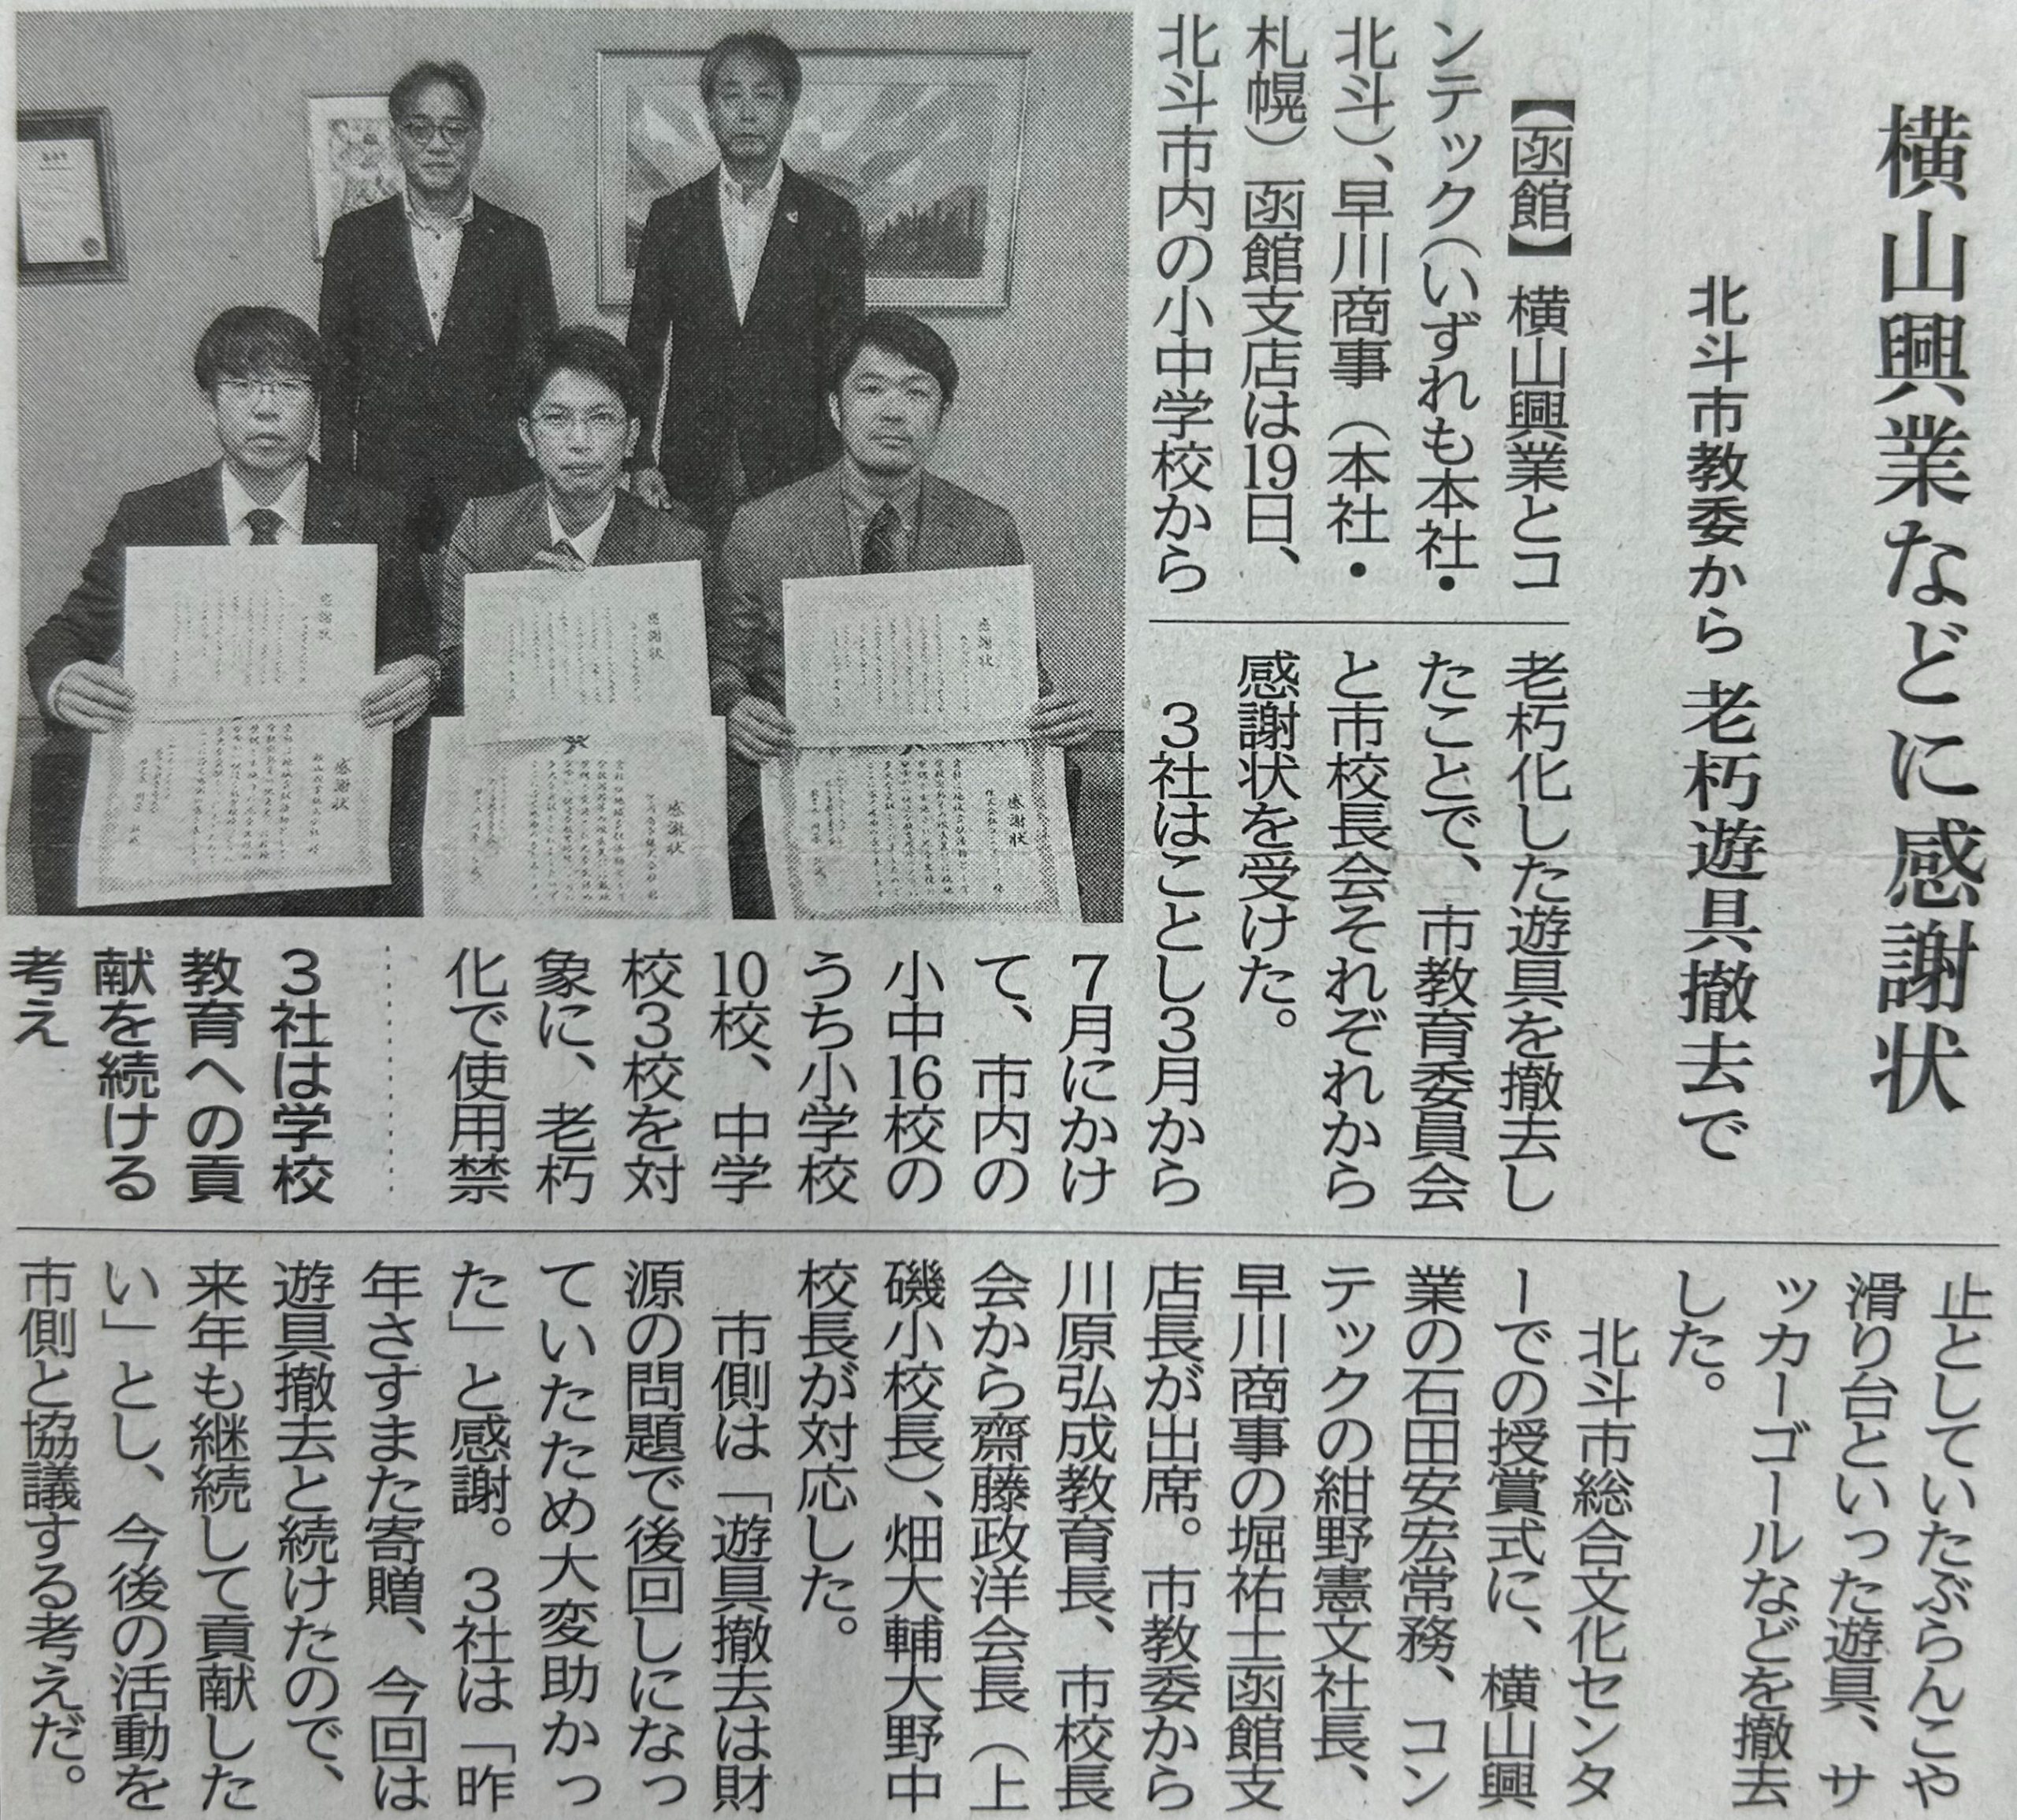 横山興業などに感謝状
北斗市教委から 老朽遊具撤去で
【函館】横山興業とコ
ンテック(いずれも本社・
北斗)、早川商事(本社・
札幌)函館支店は19日、
北斗市内の小中学校から
老朽化した遊具を撤去し
たことで、市教育委員会
と市校長会それぞれから
感謝状を受けた。
3社はことし3月から
7月にかけ
て、市内の
小中16校の
うち小学校
10校、中学
校3校を対
象に、老朽
化で使用禁
止としていたぶらんこや
滑り台といった遊具、サ
ッカーゴールなどを撤去
した。
北斗市総合文化センタ
ーでの授賞式に、横山興
業の石田安宏常務、コン
テックの紺野憲文社長、
早川商事の堀祐士函館支
店長が出席。市教委から
川原弘成教育長、市校長
会から齋藤政洋会長(上
磯小校長)、畑大輔大野中
校長が対応した。
市側は「遊具撤去は財
源の問題で後回しになっ
ていたため大変助かっ
た」と感謝。3社は「昨
年さすまた寄贈、今回は
遊具撤去と続けたので、
来年も継続して貢献した
い」とし、今後の活動を
市側と協議する考えだ。
3社は学校
教育への貢
献を続ける
考え
感謝状
感謝状
感謝状
感謝状
感謝状
感謝状